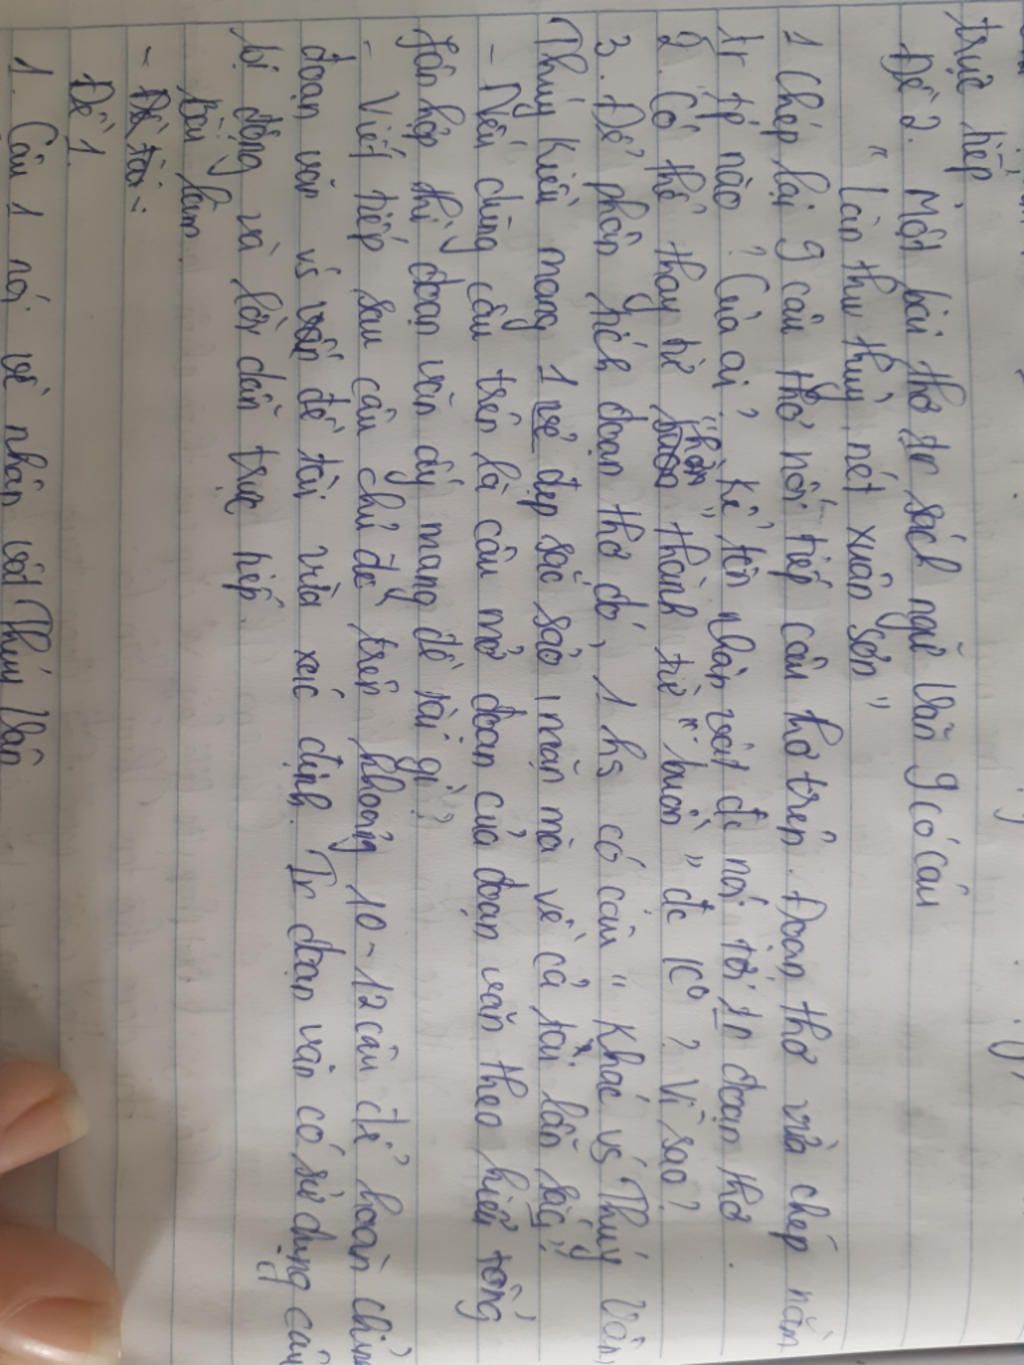 trực tiếp
Đề 2. Một bài thơ tr sách ngữ Văn 9 có câu
" Làn thu thuỷ, nét xuân sơn "
1 Chép lại 9 câu thơ nối tiếp câu thơ trên. Đoạn thơ vừa chép nằm
tr tp nào? Của ai? Kể tên nhân vật đc nói tới tr đoạn thơ.
2. Có thể thay từ "hờn" thành từ "buồn" đc ko? Vì sao?
3. Để phân tích đoạn thơ đó, 1 hs có câu " Khác vs Thúy Vân,
Thúy Kiều mang 1 vẻ đẹp sắc sảo, mặn mà về cả tài lẫn sắc"
- Nếu dùng câu trên là câu mở đoạn của đoạn văn theo kiểu tổng
phân hợp thì đoạn văn ấy mang đề tài gì?
- Viết tiếp sau câu chủ đề trên khoảng 10-12 câu để hoàn chỉnh
đoạn văn vs đề tài vừa xác định. Tr đoạn văn có sử dụng câu
bị động và lời dẫn trực tiếp.
Bài làm.
- Đề tài:
Đề 1.
1. Câu 1 nói về nhân vật Thúy Vân